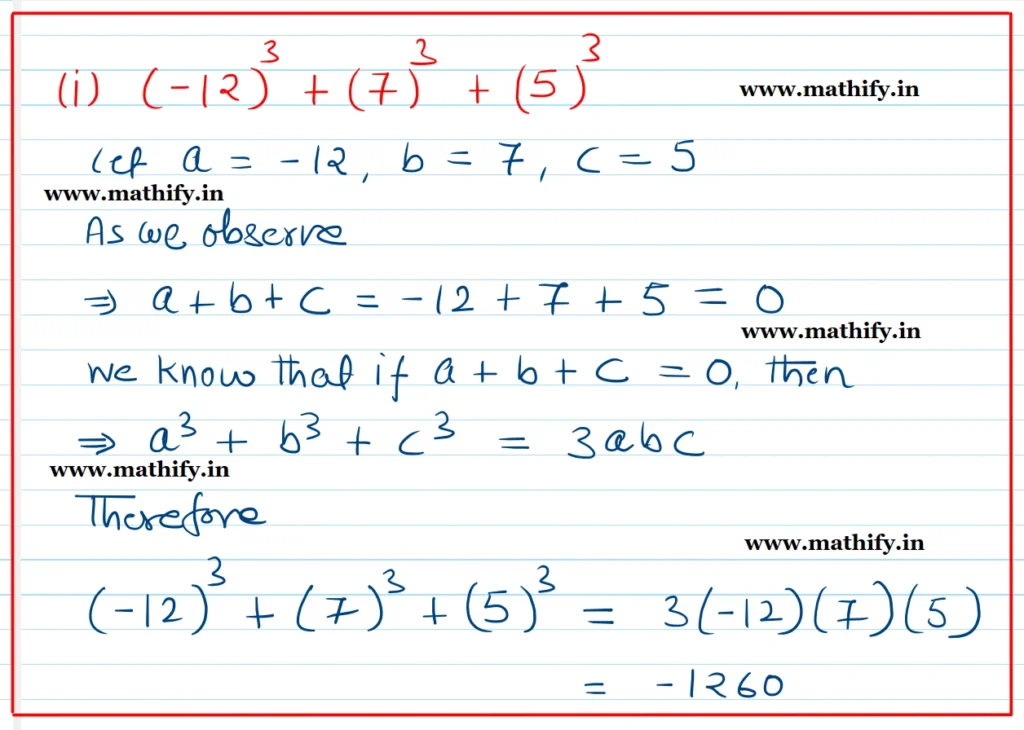 (i) (-12)³ + (7)³ + (5)³
www.mathify.in
Let a = -12, b = 7, c = 5
www.mathify.in
As we observe
⇒ a + b + c = -12 + 7 + 5 = 0
www.mathify.in
we know that if a + b + c = 0, then
⇒ a³ + b³ + c³ = 3abc
www.mathify.in
Therefore
www.mathify.in
(-12)³ + (7)³ + (5)³ = 3(-12)(7)(5)
= -1260